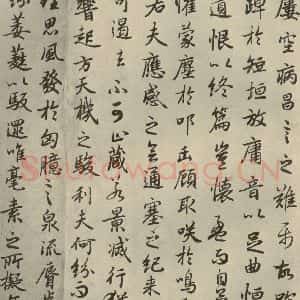 屢空病昌言之難屬故
踔於短垣放庸音以足曲
遺恨以終篇豈懷盈而自
懼蒙塵於叩缶顧取咲於鳴
若夫應感之會通塞之紀来
可遏去不可止藏若景滅行猶
響起方天機之駿利夫何紛而
理思風發於胸臆言泉流脣
葳蕤以馺遝唯毫素之所擬
Shufawang.CN